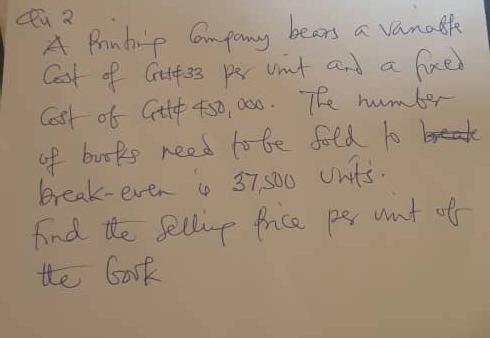 Qu 2
A Printing Company bears a variable
Cost of GH¢33 per unit and a fixed
Cost of GH¢ 450,000. The number
of books need to be sold to break
break-even is 37,500 units.
Find the Selling price per unit of
the book